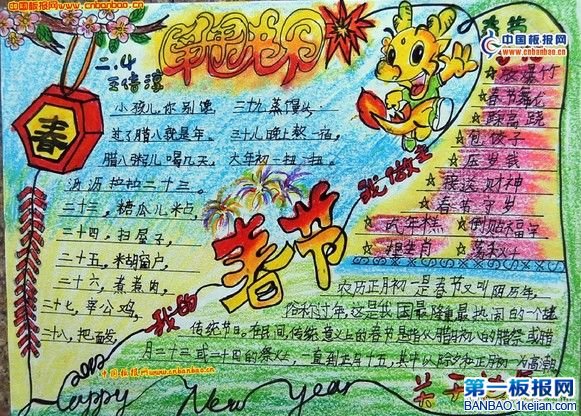 中国板报网
www.cnbanbao.cn
二.4
王倍淳
春
小孩儿,你别馋
过了腊八就是年。
腊八粥儿喝几天,
沥沥拉拉二十三。
二十三,糖瓜儿米点,
二十四,扫屋子,
二十五,米胡窗户,
二十六,煮煮肉,
二十七,宰公鸡,
二十八,把面发,
二十九,蒸馒头。
三十儿晚上熬一宿,
大年初一扭一扭。
我的
春节
我做主
中国板报网
www.cnbanbao.cn
放爆竹
☆春节舞龙
☆踩高跷
☆包饺子
☆压岁钱
☆接送财神
☆春节守岁
☆吃年糕 ☆倒贴福字
☆
农历正月初一是春节又叫阴历年,
俗称过年,这是我国最隆重最热闹的一个
传统节日。在民间,传统意义上的春节是指从腊月初八的腊祭或腊
月二十三或二十四的祭灶,一直到正月十五,其中以除夕和正月初一为高潮
2012
中国板报网 www.cnbanbao.cn
Happy New Year
关于
第一板报网
BANBAO.1kejian.com